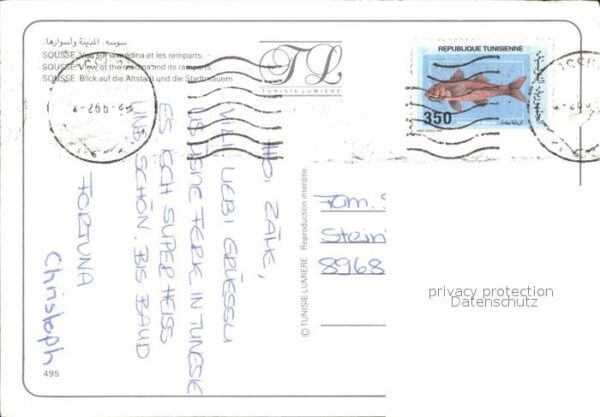 سوسه. المدينة وأسوارها.
SOUSSE. Vue sur la médina et les remparts.
SOUSSE. View of the medina and its ramparts.
SOUSSE. Blick auf die Altstadt und die Stadtmauern
TL
TUNISIE LUMIERE
REPUBLIQUE TUNISIENNE
350
HOI ZÄME,
VILI LIEBI GRÜESSLI
US DENE FERIE IN TUNESIE
ES ISCH SUPER HEISS
UND SCHÖN. BIS BAUD
FORTUNA
Christoph
© TUNISIE LUMIERE Reproduction interdite
Fam.
Stein
8968
privacy protection
Datenschutz
495